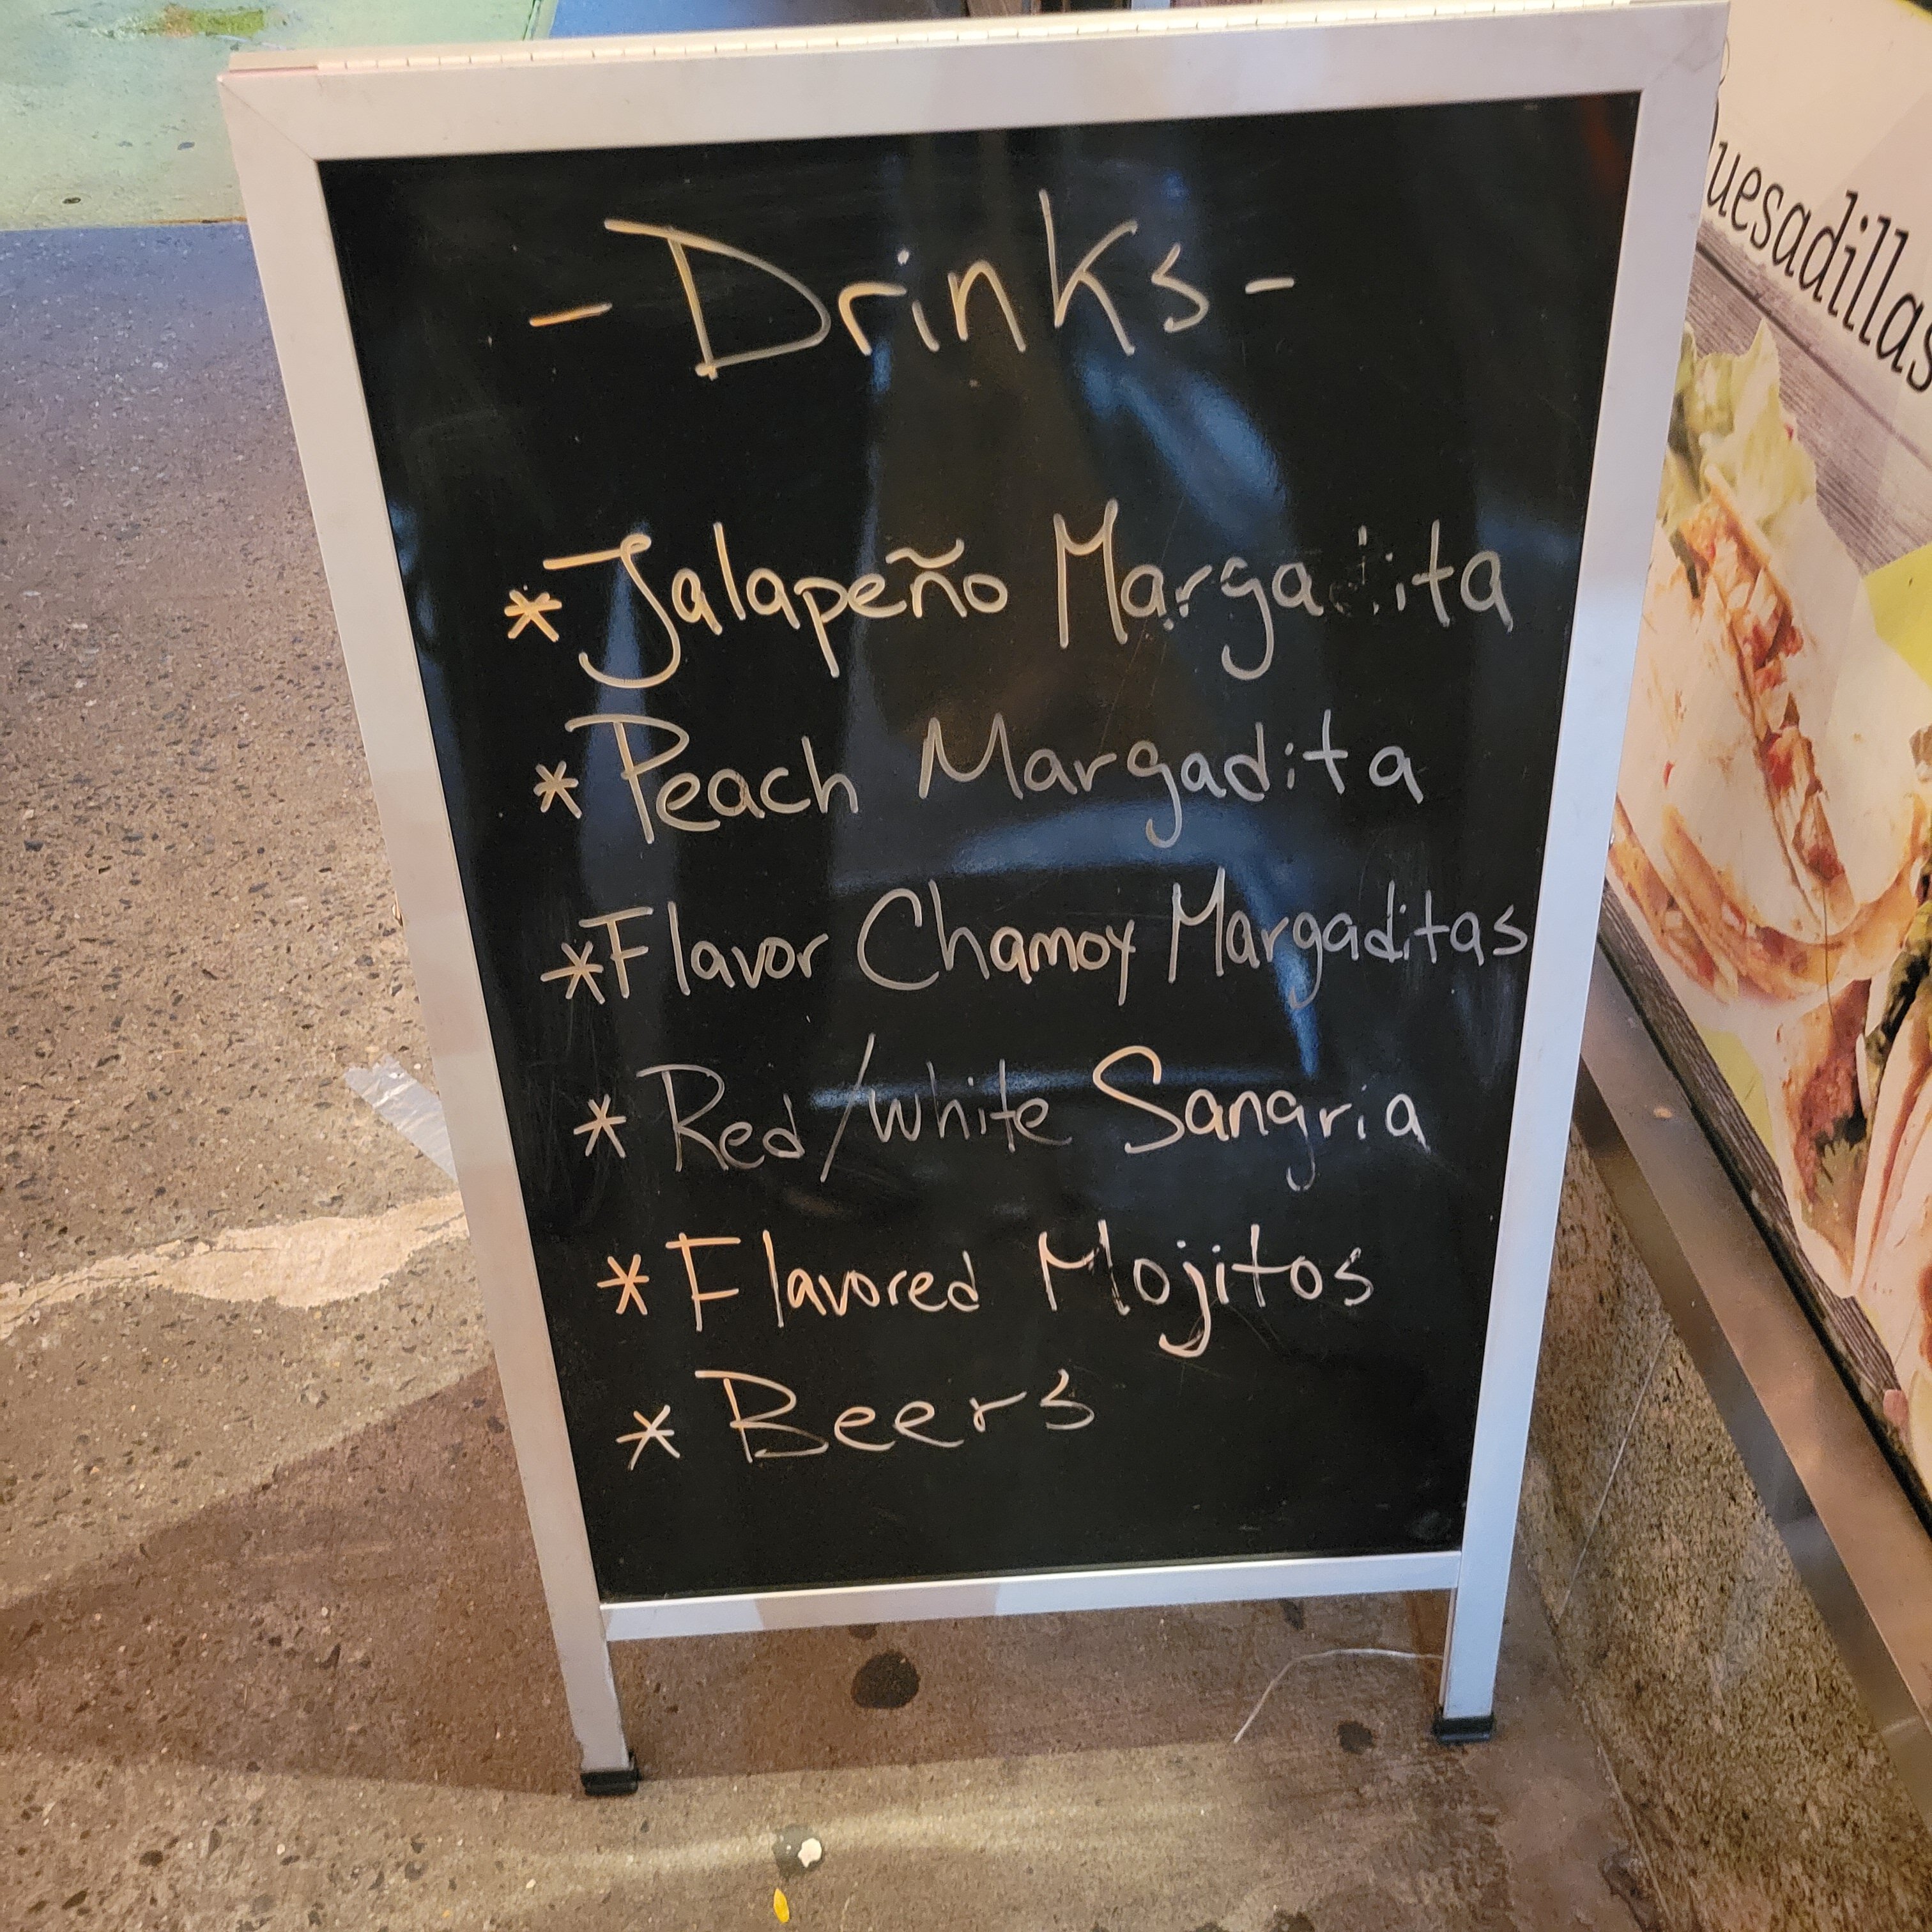 - Drinks -
* Jalapeño Marga ita
* Peach Margadita
* Flavor Chamoy Margaditas
* Red/white Sangria
* Flavored Mojitos
* Beers
uesadillas